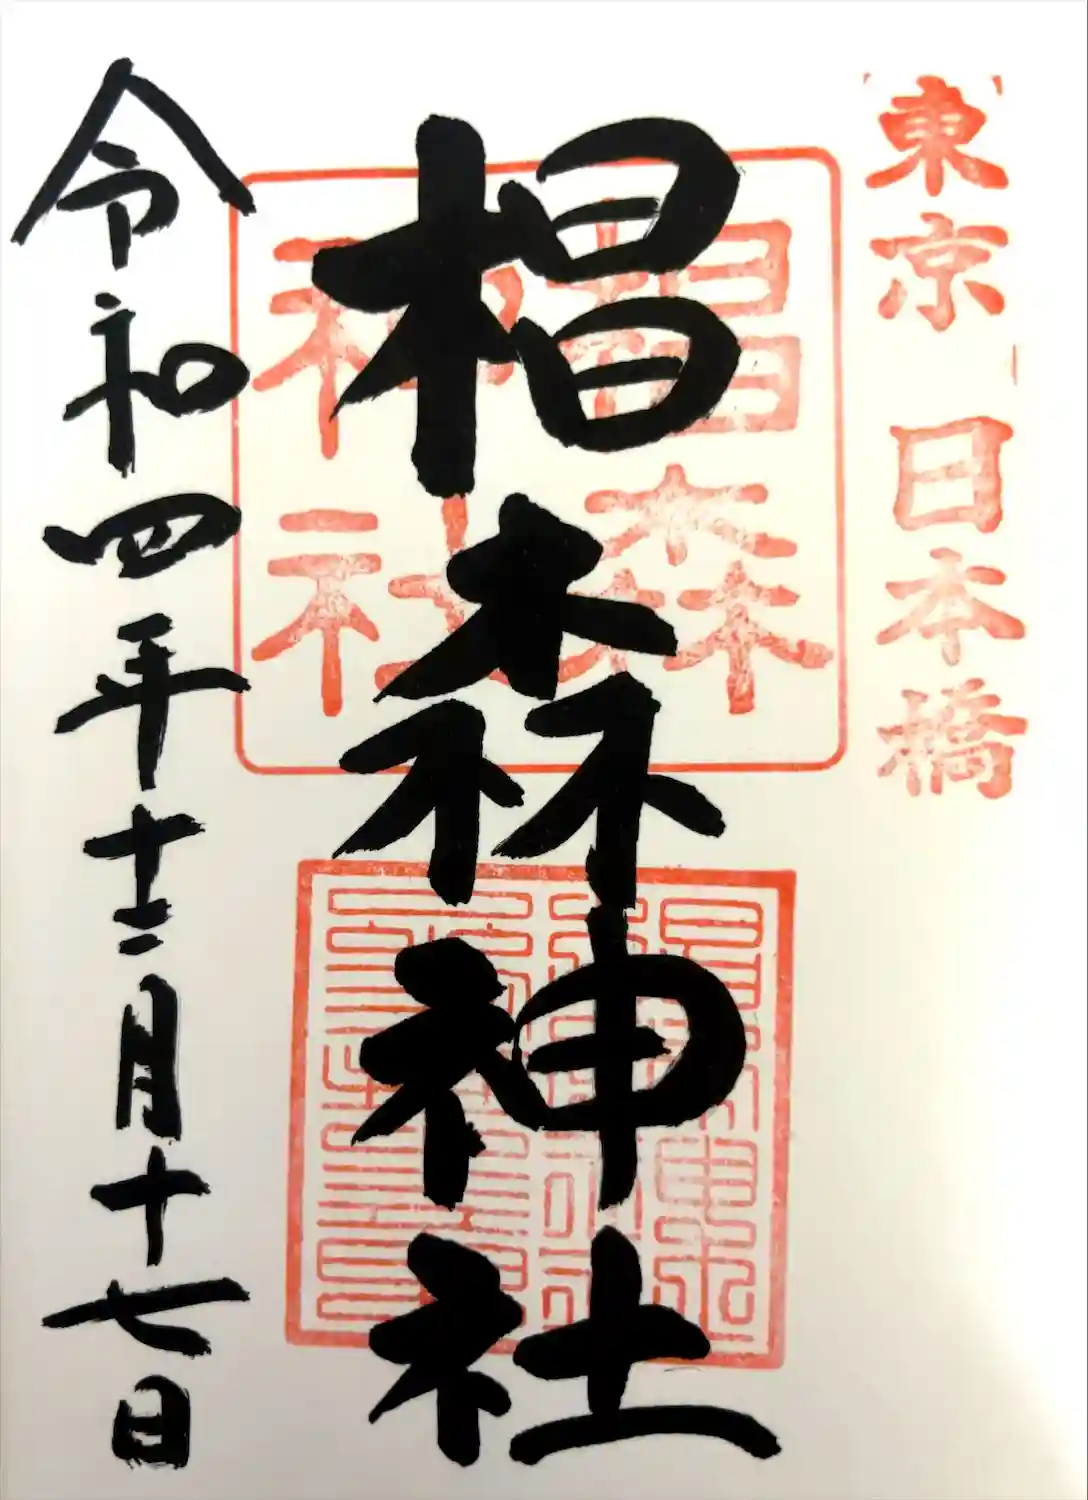 東京 日本橋
椙森神社
椙森神社
令和四年十二月十七日